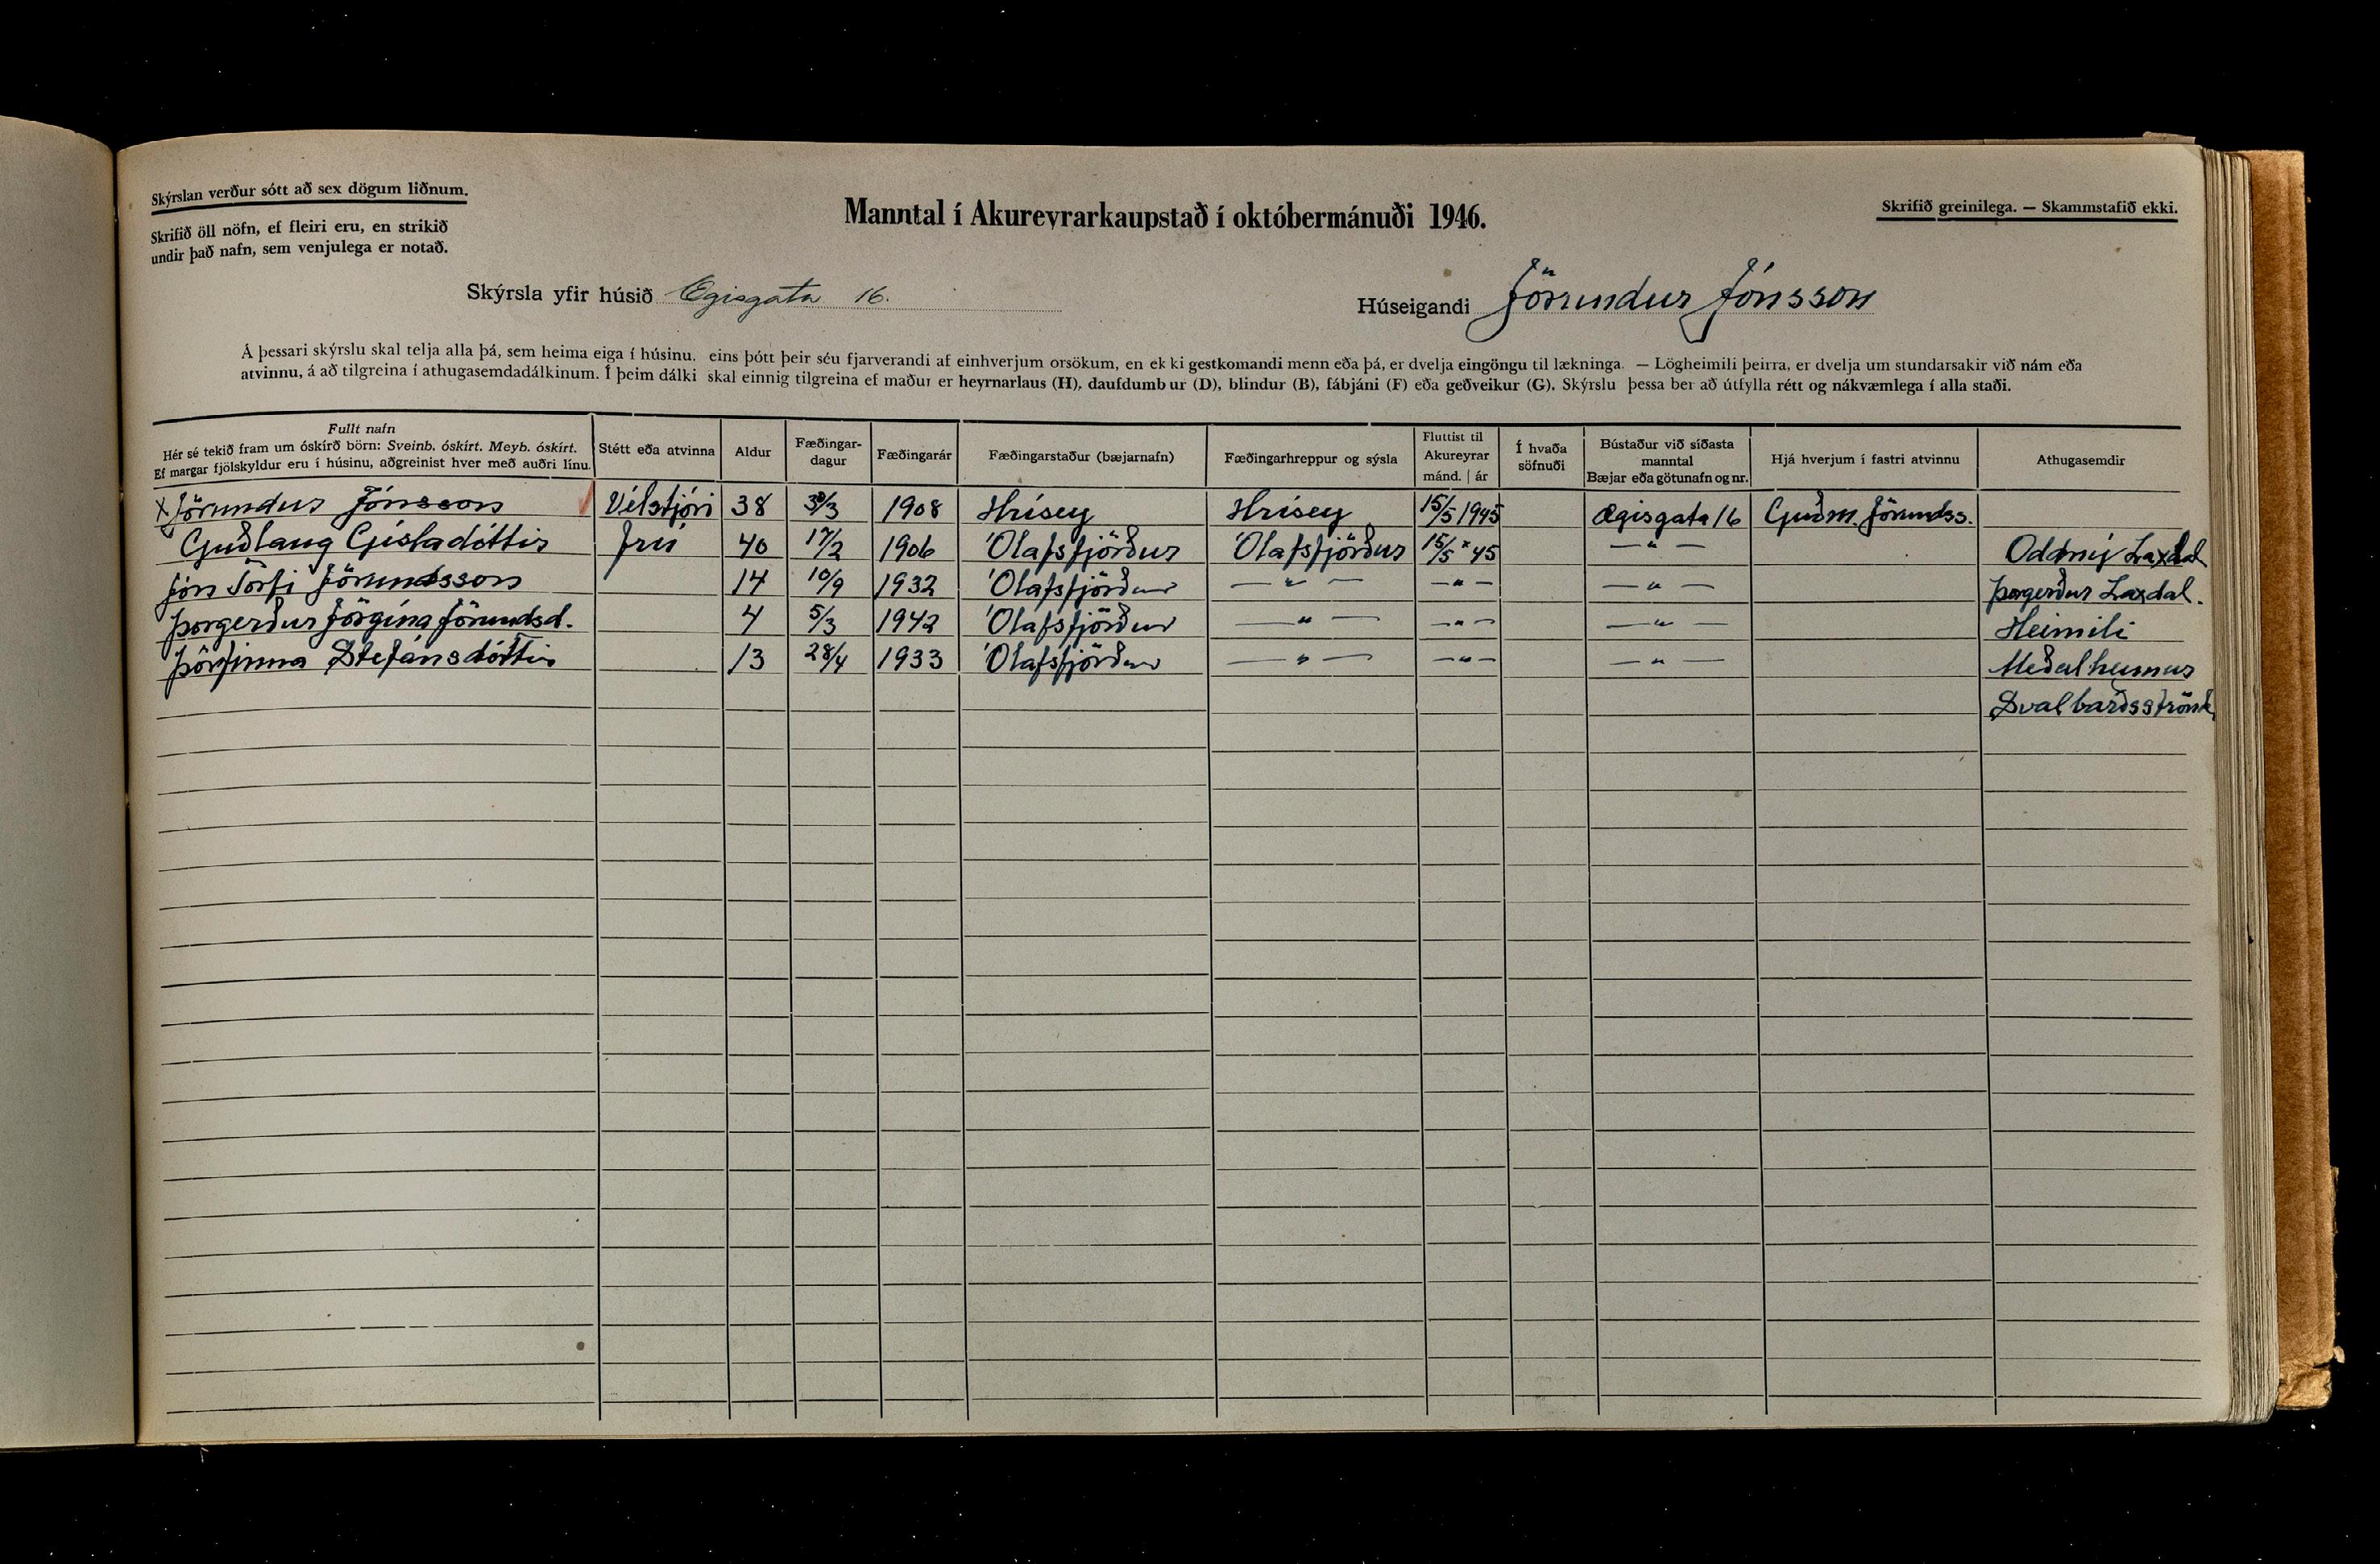 Skýrslan verður sótt að sex dögum liðnum.
Skrifið öll nöfn, ef fleiri eru, en strikið
undir það nafn, sem venjulega er notað.
Manntal í Akureyrarkaupstað í októbermánuði 1946.
Skrifið greinilega. — Skammstafið ekki.
Skýrsla yfir húsið Ægisgata 16.
Húseigandi Jörundur Jónsson
Á þessari skýrslu skal telja alla þá, sem heima eiga í húsinu, eins þótt þeir séu fjarverandi af einhverjum orsökum, en ekki gestkomandi menn eða þá, er dvelja eingöngu til lækninga. — Lögheimili þeirra, er dvelja um stundarsakir við nám eða
atvinnu, á að tilgreina í athugasemdadálkinum. Í þeim dálki skal einnig tilgreina ef maður er heyrnarlaus (H), daufdumbur (D), blindur (B), fábjáni (F) eða geðveikur (G). Skýrslu þessa ber að útfylla rétt og nákvæmlega í alla staði.
Fullt nafn
Hér sé tekið fram um óskírð börn: Sveinb. óskírt. Meyb. óskírt.
Ef margar fjölskyldur eru í húsinu, aðgreinist hver með auðri línu.
Stétt eða atvinna
Aldur
Fæðingar-
dagur
Fæðingarár
Fæðingarstaður (bæjarnafn)
Fæðingarhreppur og sýsla
Fluttist til
Akureyrar
mánd. | ár
Í hvaða
söfnuði
Bústaður við síðasta
manntal
Bæjar eða götunafn og nr.
Hjá hverjum í fastri atvinnu
Athugasemdir
x Jörundur Jónsson Vélstjóri 38 30/3 1908 Hrísey Hrísey 15/5 1945 Ægisgata 16 Guðm. Jörundss.
Guðlaug Gísladóttir Frú 40 17/2 1906 Ólafsfjörður Ólafsfjörður 15/5 " 45 — " — Oddný Laxdal
Jón Torfi Jörundsson 14 10/9 1932 Ólafsfjörður — " — — " — — " — Þorgerður Laxdal.
Þorgerður Jörgína Jörundsd. 4 5/3 1942 Ólafsfjörður — " — — " — — " — Heimili
Þórfinna Stefánsdóttir 13 28/4 1933 Ólafsfjörður — " — — " — — " — Meðalheimur
Svalbarðsströnd